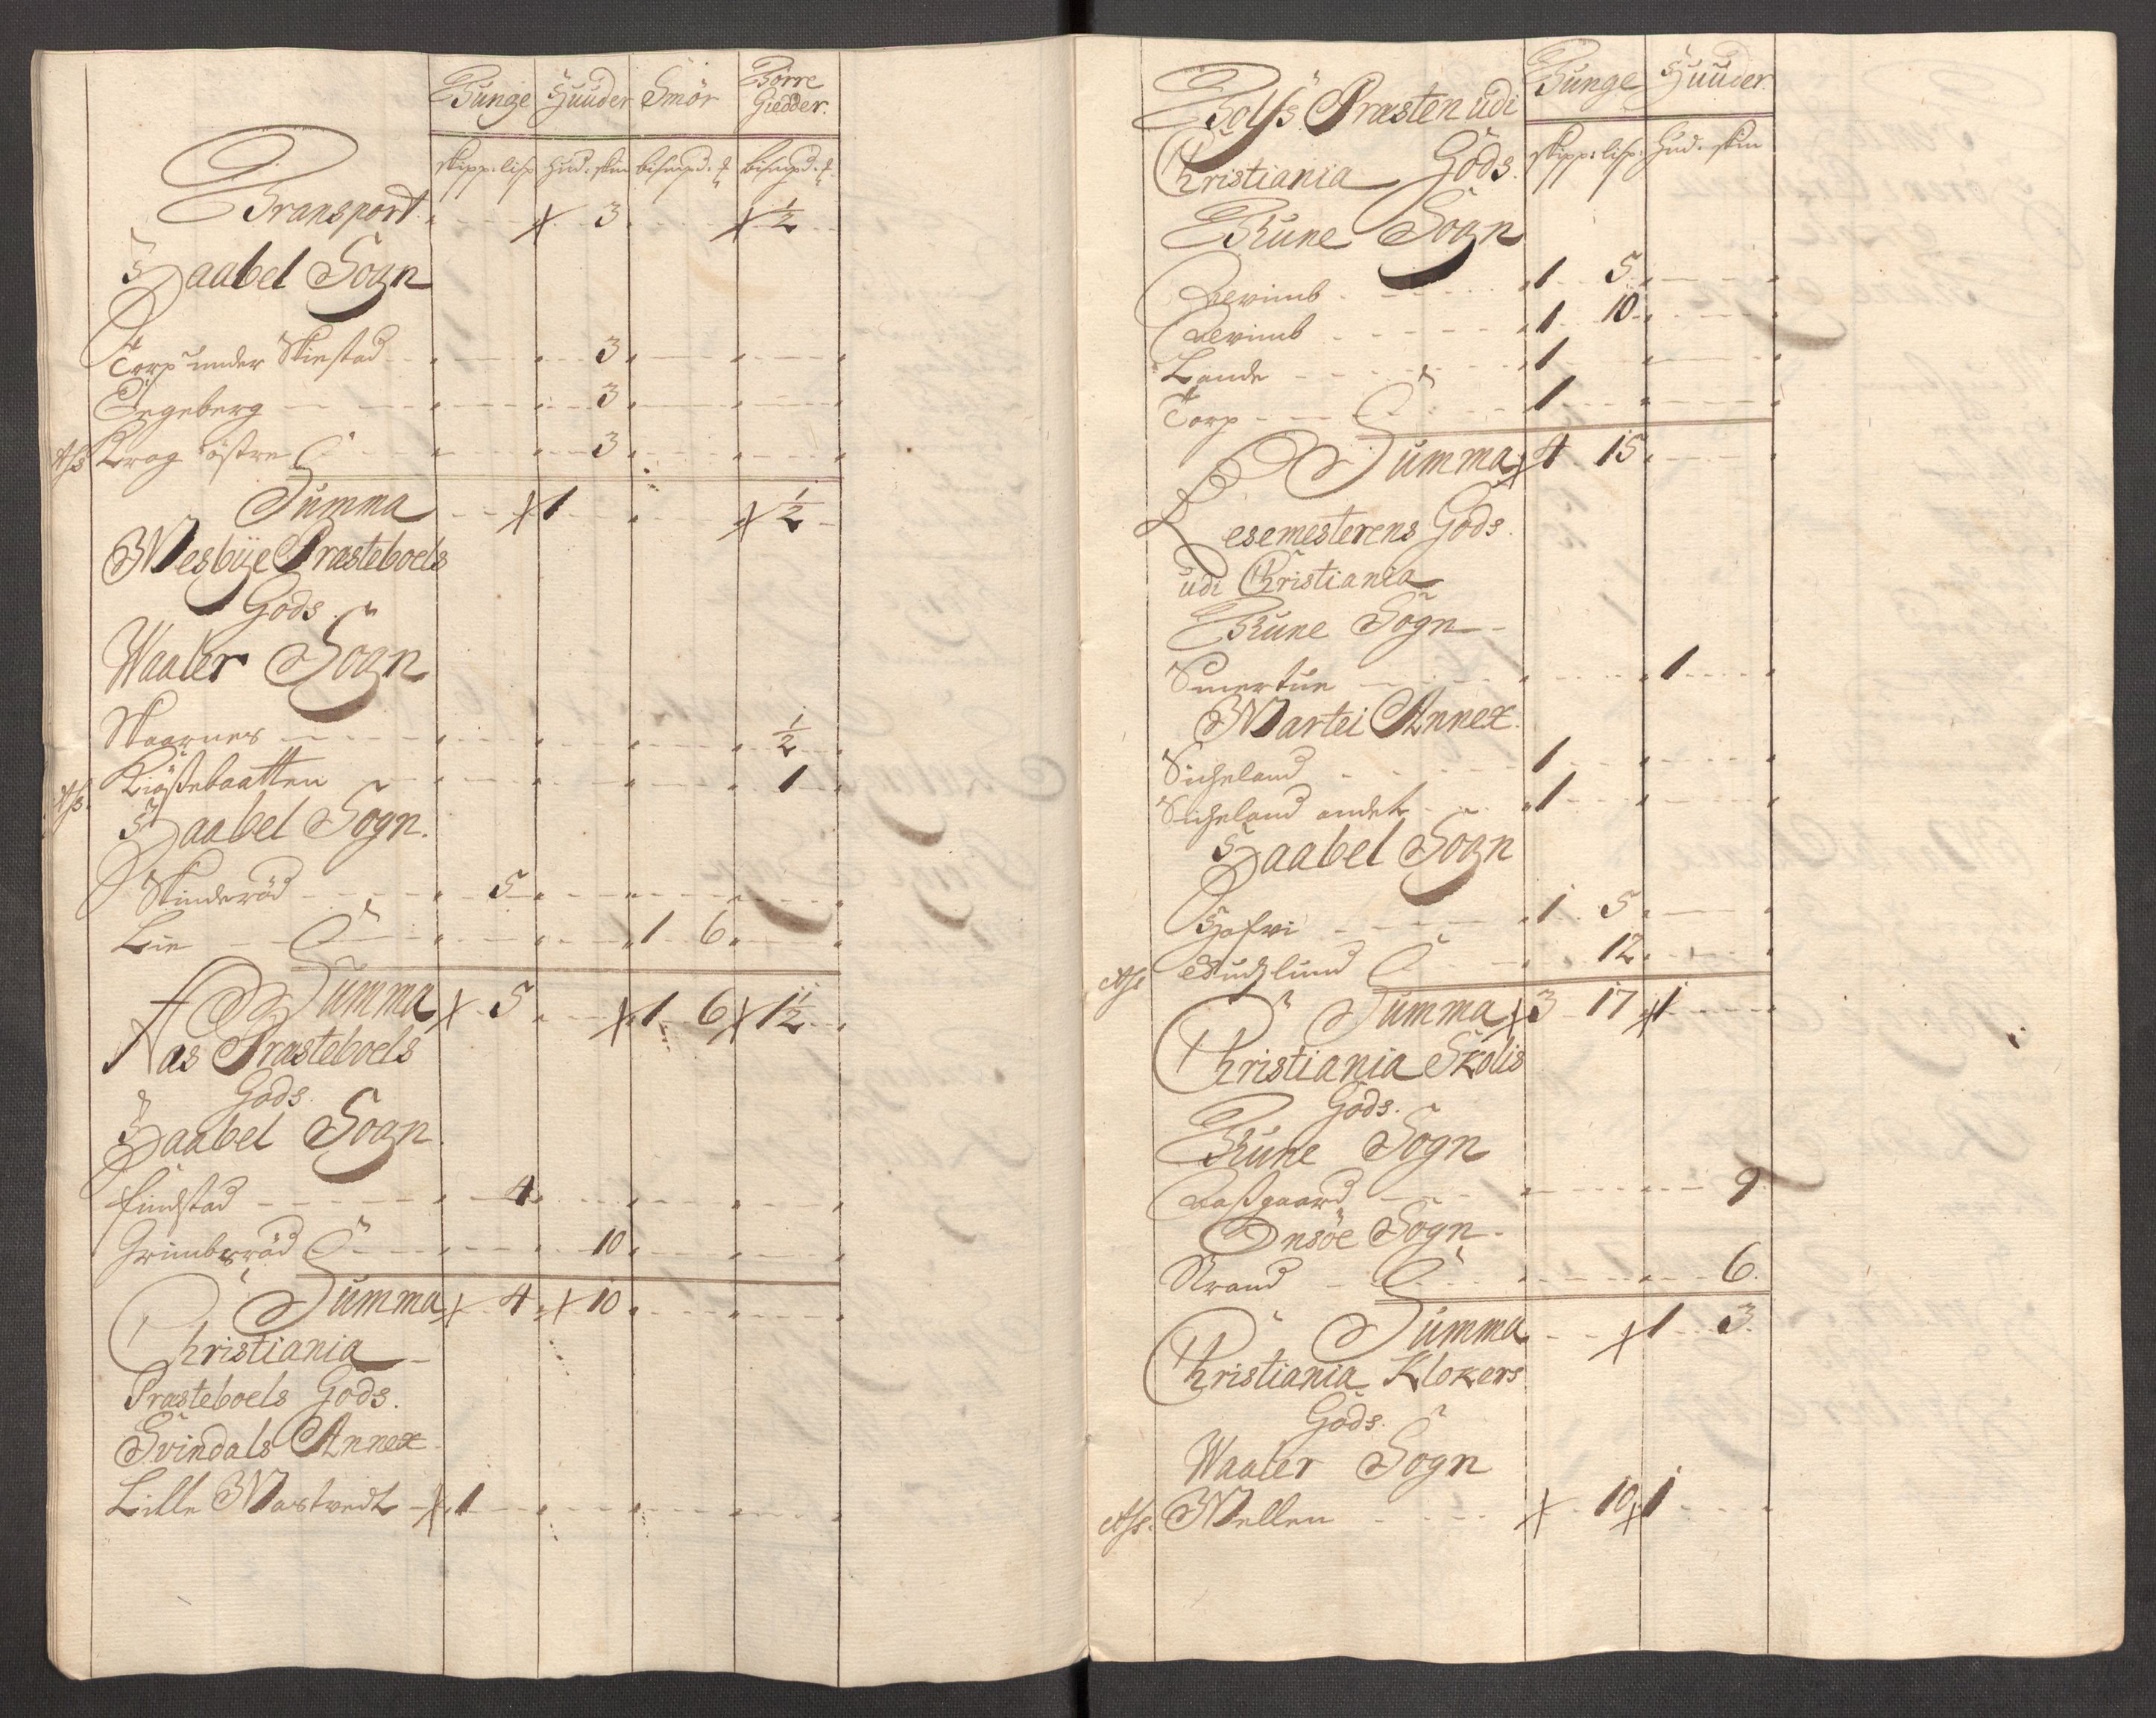 Tunge Huuder Smör Törre Giedder.
skipp: lisp hud: skin bismpd. ℔ bismpd. ℔
Transport. - - - x 3. - - x ½ -
Haabel Sogn
Torp under Skiestad - - 3 - -
Tegeberg - - 3 - -
Afs Krog östre - - 3 - -
Summa - - x 1 - - x ½ -
Westbye Præsteboels
Gods.
Waaler Sogn
Skaarnes - - - ½
Afs. Kiössebaatten - - - 1
Haabel Sogn.
Skinderöd - 5 - - -
Lie - - - 1 6 -
Summa x 5. - x 1 6 x 1½
Aas Præsteboels
Gods.
Haabel Sogn
Findstad - 4 - - -
Grimbsröd - - 10 - -
Summa x 4 x 10 - -
Christiania
Præsteboels Gods.
Svindals Annex
Lille Mastvedt - x 1 - - -
Tunge Huuder
Rolfs Præsten udi
skipp: lisp: hud: skin
Christiania Gods.
Rune Sogn
Revimb - 1 5 -
Revimb - 1 10 -
Lande - 1 -
Torp - 1 -
Summa x 4 15 -
Lesemesterens Gods.
udi Christiania
Rune Sogn
Smertue - - 1
Martei Annex.
Sicheland - 1 -
Sicheland andet - 1 -
Haabel Sogn
Hofvi - 1 5 -
Afs Budslund - 12 -
Summa x 3 17 x 1 -
Christiania Skolis
Gods.
Rune Sogn
Rossgaard - - 9
Onsöe Sogn.
Strand - - 6.
Summa - - x 1 3.
Christiania Klokers
Gods.
Waaler Sogn
Afs. Mellen - x 10 x 1 -